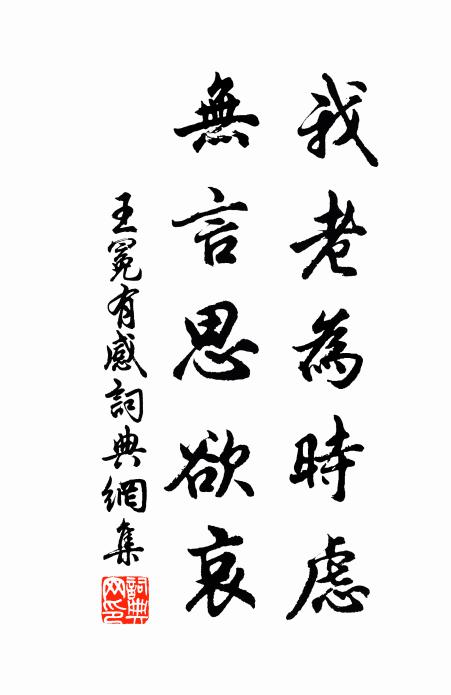 我老為時慮
無言思欲哀
王冕有感詞典網集
詞典
网印